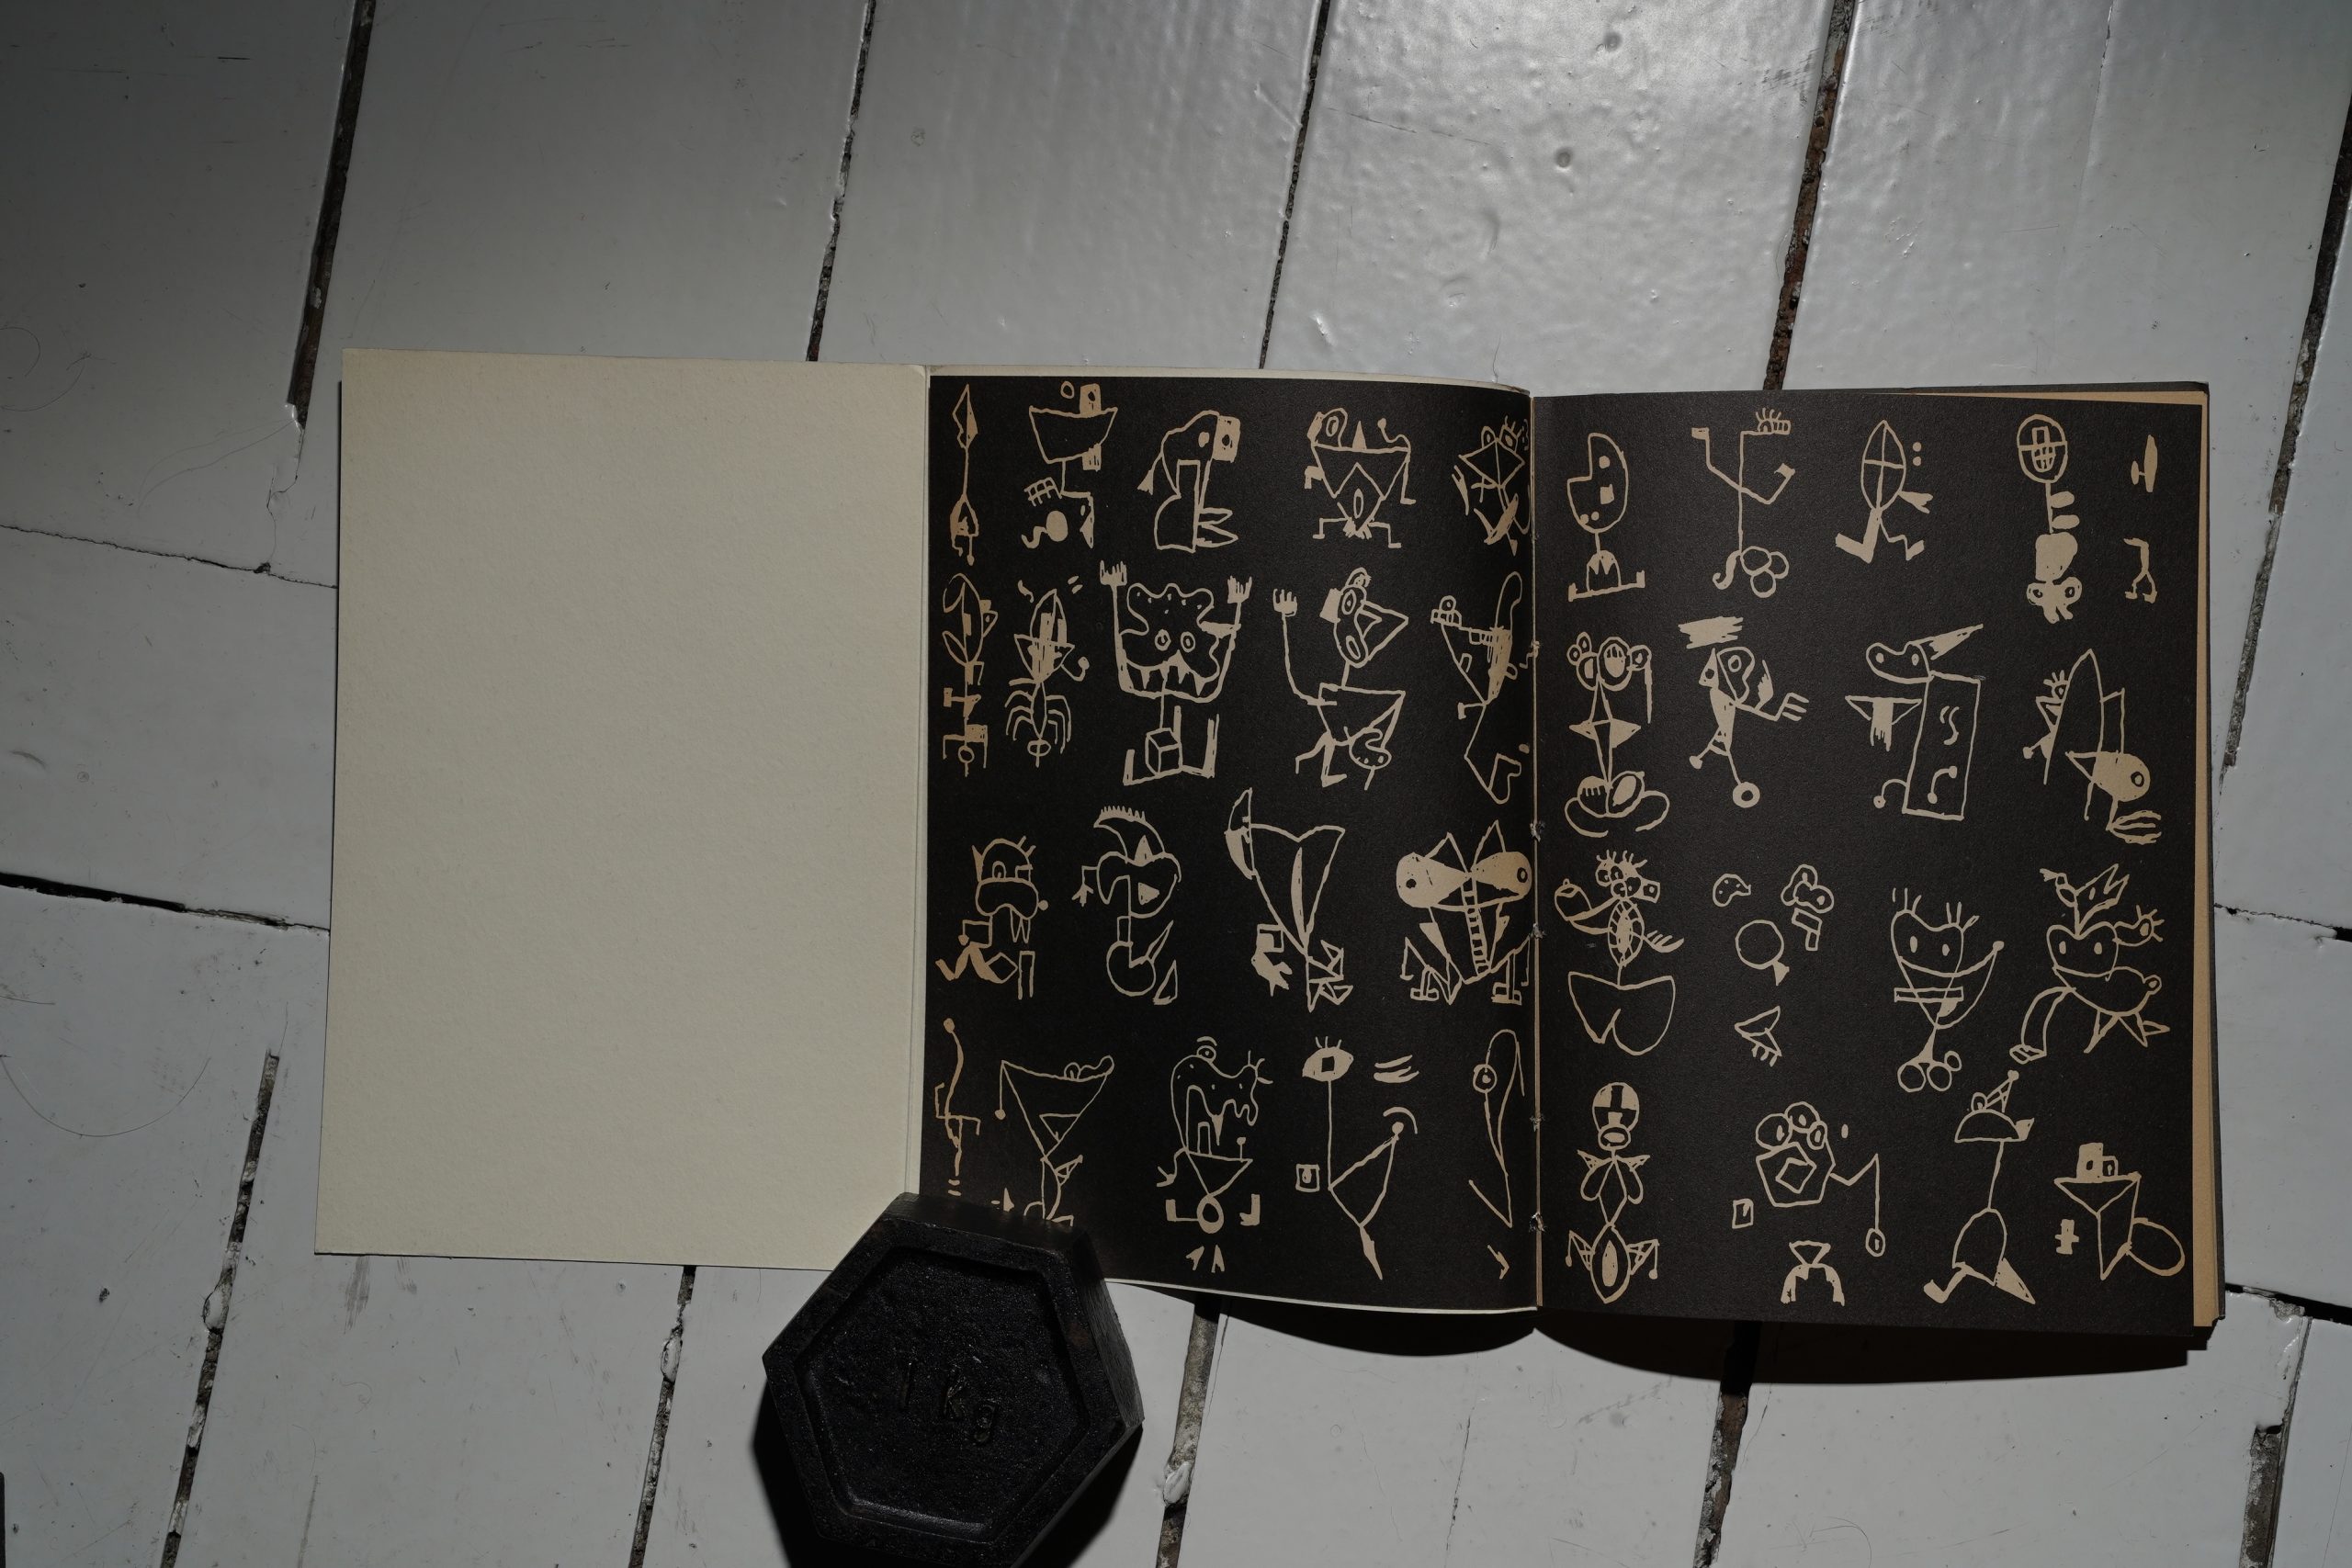 1 kg